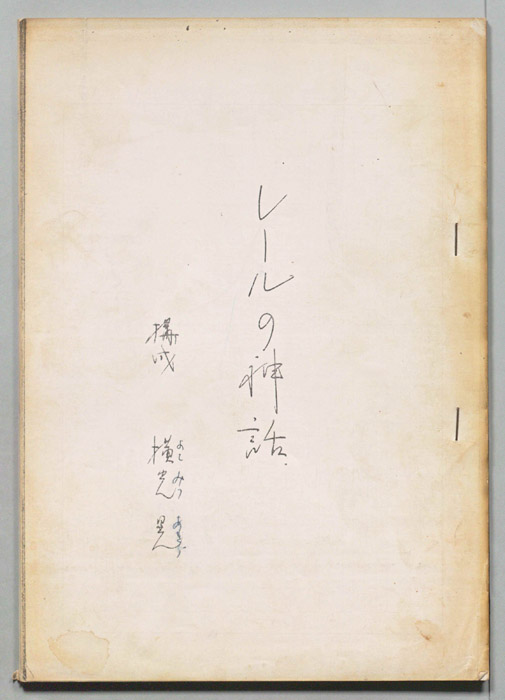 レールの神話
構成 横光 晃
よこ みつ あきら